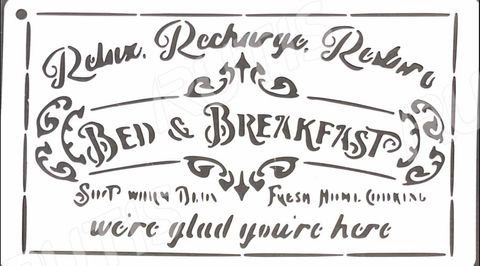 Relax. Recharge. Restore
BED & BREAKFAST
Soft Warm Beds Fresh Home Cooking
we're glad you're here